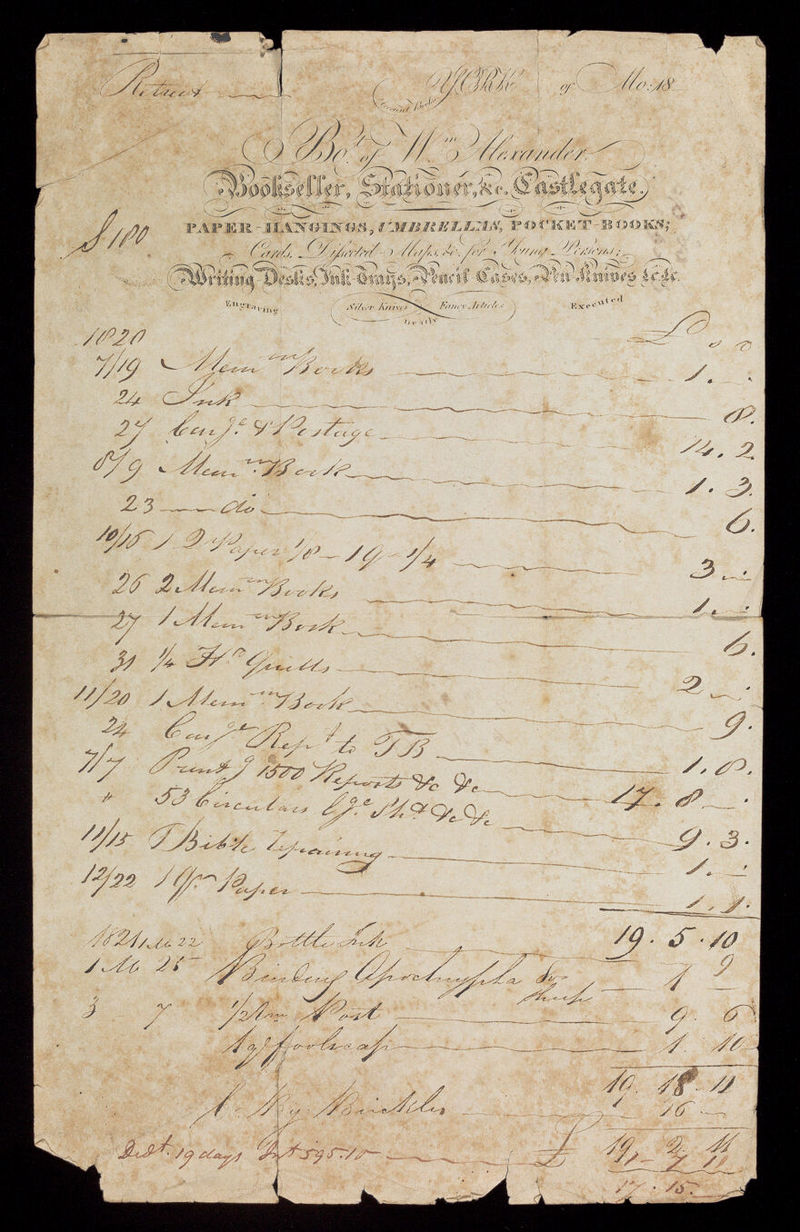 Retreat YORK of Mo: 18
Account Books
Bot. of Wm. Alexander
Bookseller, Stationer, &c. Castlegate,
PAPER-HANGINGS, UMBRELLAS, POCKET-BOOKS;
Cards, Disected Maps, &c. for Young Persons;
Writing Desks, Ink Trays, Pencil Cases, Pen Knives &c &c
Engraving Silver Knives Fancy Articles Executed
Neatly
180
1820 £ s D
7/19 Memm Books 1. -
24 Ink 8.
27 Carge. & Postage 14. 2
8/9 Memm. Book 1. 3.
23 do 6.
10/16 1 Q Paper 1/8 - 19 - 1/4 3 -
26 2 Memm Books 1. -
27 1 Memm Book 6.
31 1/4 Hd Quills 2 -
11/20 1 Memm Book 9.
24 Carge Rept to TB 1. 8.
7/7 Printg 1500 Reports &c &c 17. 8 -
" 53 Circulars Lge. Sht. &c &c 9. 3.
11/15 T Bible repairing 1. -
12/22 1 Qr Paper 1. 1.
19. 5. 10
1821 1 Mo 22 Bottle Ink 9
1 Mo 25 Binding Apochrypha 1 -
3 7 1/2 Rm Post 9. 6
1 qr foolscap 1. 10
19. 18. 11
16 -
£ 19 2 11
Dedt. 19 days
17. 15.